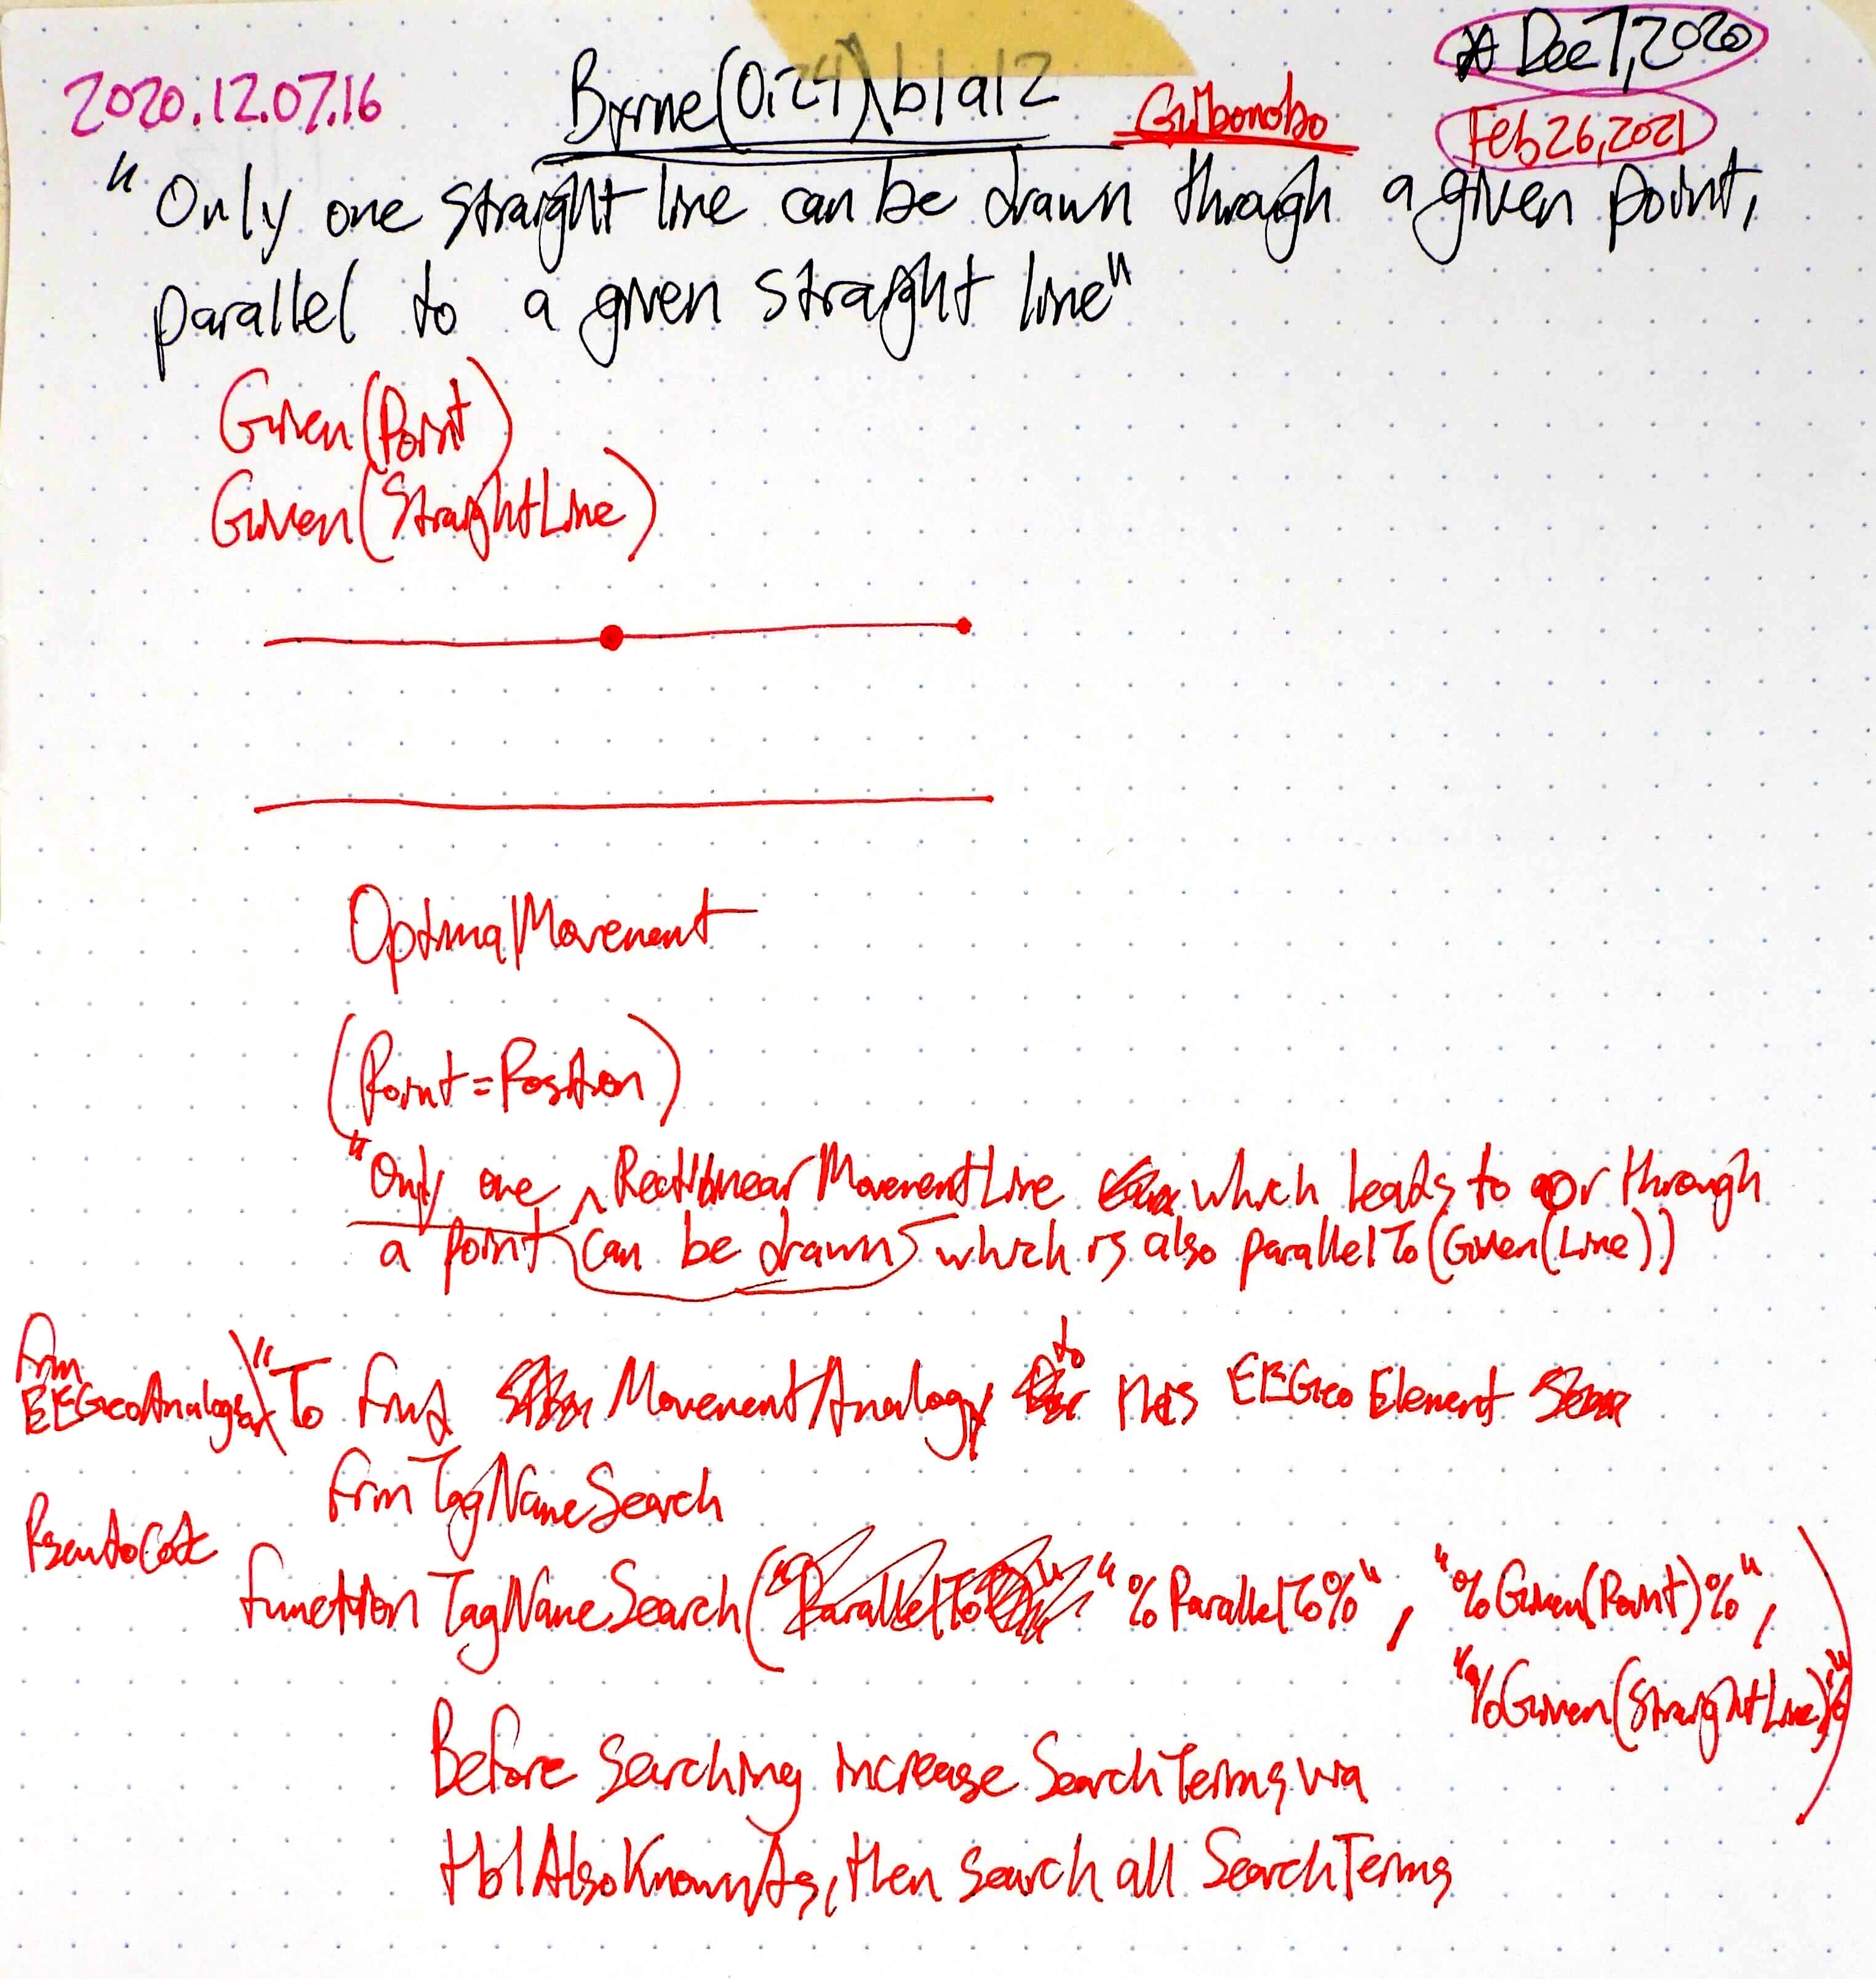 2020.12.07.16
Byrne(0:24)\b1a12
Gitbonobo
Dec 7, 2020
Feb 26, 2021
"Only one straight line can be drawn through a given point,
parallel to a given straight line"
Given(Point)
Given(StraightLine)
OptimalMovement
(Point=Position)
"Only one ^ RectilinearMovementLine which leads to or through
a point can be drawn which is also parallelTo(Given(Line))
frm
EEGeoAnalogy
"To find MovementAnalogy to this EEGeoElement
frmTagNameSearch
PseudoCode
function TagNameSearch("ParallelTo" "%ParallelTo%", "%Given(Point)%",
"%Given(StraightLine)%")
Before searching increase SearchTerms via
tblAlsoKnownAs, then search all SearchTerms